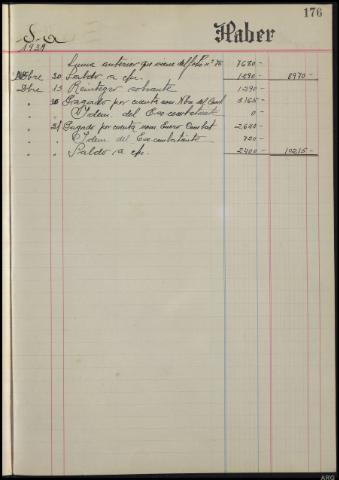 176
S-a Haber
1939
Suma anterior que viene del folio nº 76 7680-
Nbre 30 Saldo a c/c. 1290- 8970-
Dbre 13 Reintegro sobrante 1290-
" 30 Pagado por cuenta nom Nbre del Comb 5165-
" " Idem. del Excombatiente 0-
" 31 Pagado por cuenta nom Enero Combat 2600-
" " Idem del Excombatiente 720-
" " Saldo a c/c. 2400- 10215-
ARG